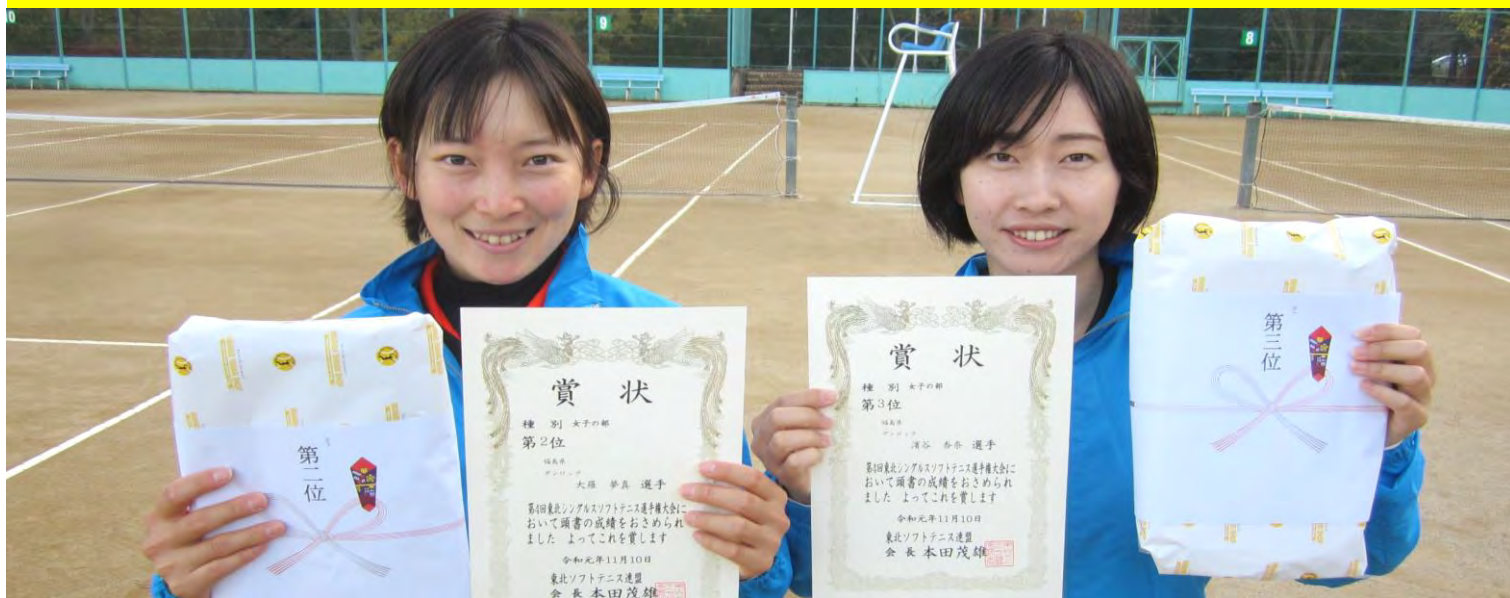 10
9
8
第二位
賞 状
種 別 女子の部
第2位
福島県
ダンロップ
大槻 夢真 選手
第4回東北シングルスソフトテニス選手権大会に
おいて頭書の成績をおさめられ
ました よってこれを賞します
令和元年11月10日
東北ソフトテニス連盟
会 長 本田茂雄
賞 状
種 別 女子の部
第3位
福島県
ダンロップ
濱谷 杏奈 選手
第4回東北シングルスソフトテニス選手権大会に
おいて頭書の成績をおさめられ
ました よってこれを賞します
令和元年11月10日
東北ソフトテニス連盟
会 長 本田茂雄
第三位